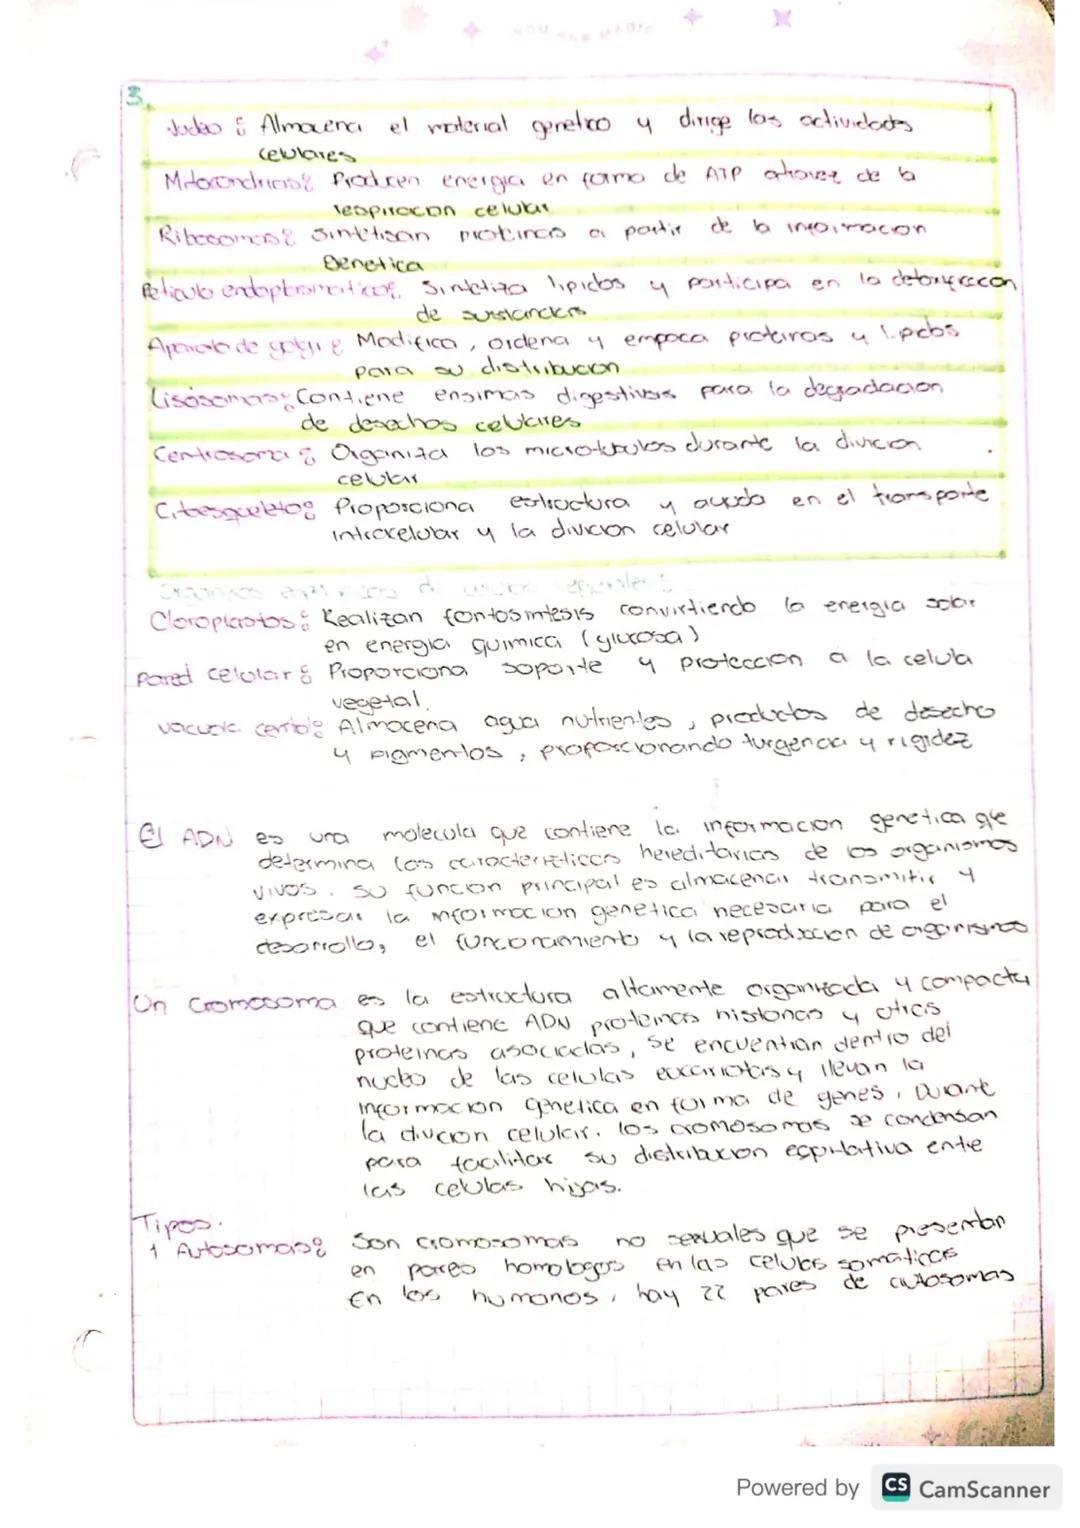 3.
Nucleo: Almacena el material genetico y dirige las actividades
celulares
Mitocondrias: Producen energia en forma de ATP atravez de la
respiracion celular
Ribosomas: Sintetisan proteinas a partir de la informacion
Genetica
Reticulo endoplasmatico: Sintetiza lipidos y participa en la detoxificacion
de sustancias
Aparato de golgi: Modifica, ordena y empaca proteinas y lipidos
para su distribucion
Lisosomas: Contiene ensimas digestivas para la degradacion
de desechos celulares
Centrosoma: Organiza los microtubulos durante la divicion
celular
Citoesqueleto: Proporciona estructura y ayuda en el transporte
intracelular y la divicion celular
Cloroplastos: Realizan fontosintesis convirtiendo la energia solar
en energia quimica (glucosa)
Pared celular: Proporciona soporte y proteccion a la celula
vegetal.
vacuola central: Almacena agua nutrientes, productos de desecho
y pigmentos, proporcionando turgencia y rigidez
El ADN es una molecula que contiene la informacion genetica que
determina las caracteristicas hereditarias de los organismos
vivos. su funcion principal es almacenar transmitir y
expresar la informacion genetica necesaria para el
desarrollo, el funcionamiento y la reproduccion de organismos
Un Cromosoma es la estructura altamente organizada y compacta
que contiene ADN proteinas histonas y otras
proteinas asociadas, se encuentran dentro del
nucleo de las celulas eucariotas y llevan la
informacion genetica en forma de genes, Durante
la divicion celular. los cromosomas se condensan
para facilitar su distribucion entre
las celulas hijas.
Tipos.
1 Autosomas: Son cromosomas no sexuales que se presentan
en pares homologos en las celulas somaticas
En los humanos, hay 22 pares de autosomas
Powered by CS CamScanner